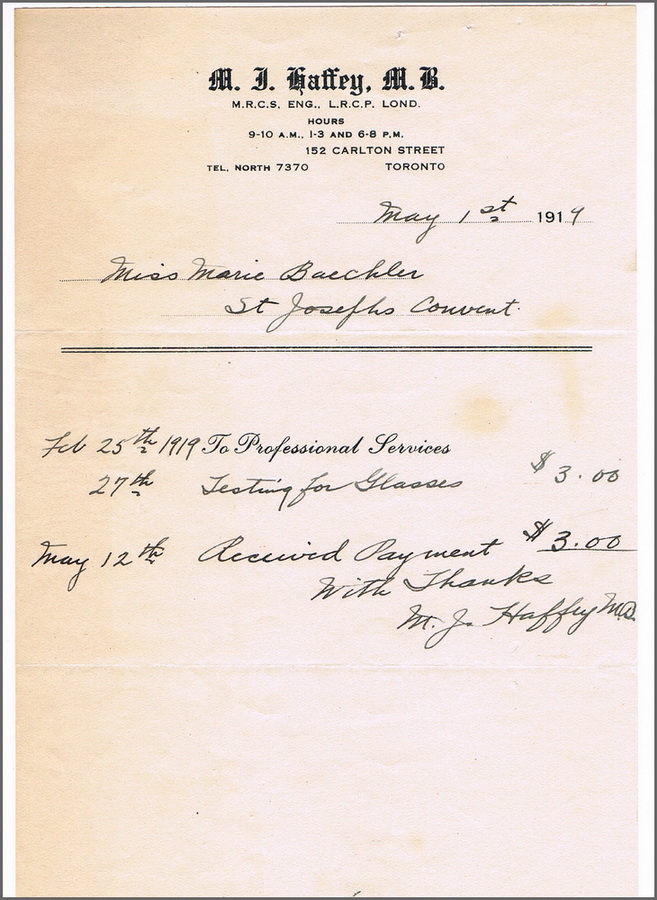 M. J. Haffey, M.B.
M.R.C.S. ENG., L.R.C.P. LOND.
HOURS
9-10 A.M., 1-3 AND 6-8 P.M.
152 CARLTON STREET
TEL. NORTH 7370 TORONTO
May 1st 1919
Miss Marie Baechler
St Josephs Convent.
Feb 25th 1919 To Professional Services
27th Testing for Glasses $3.00
May 12th Received Payment $3.00
With Thanks
M. J. Haffey M.B.